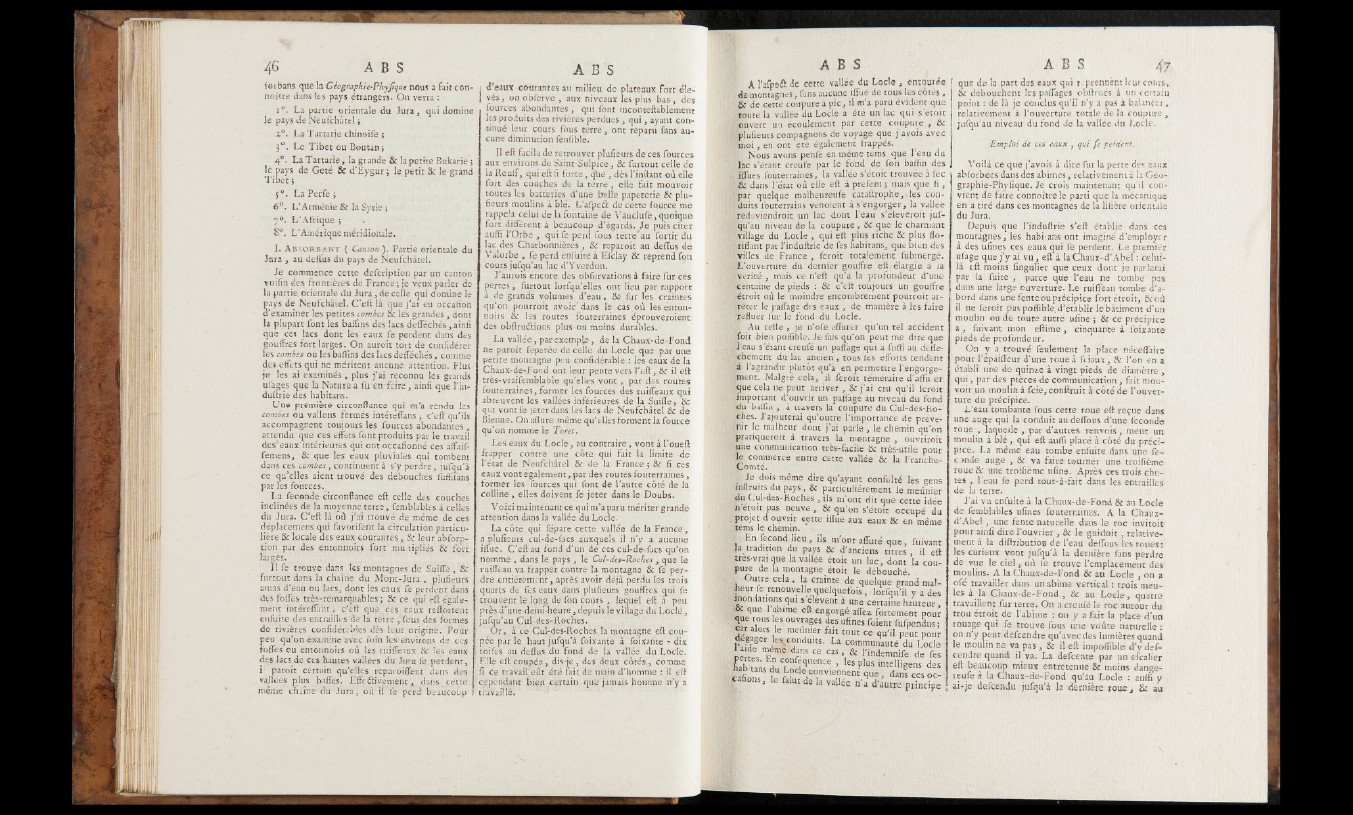 46 A B S
sorbans que la Géographie-Physique nous a fait con-
noître dans les pays étrangers. On verra :
1°. La partie orientale du Jura, qui domine
le pays de Neufchâtel ;
2°. La Tartarie chinoise ;
3°. Le Tibet ou Boutan ;
4°. La Tartarie, la grande & la petite Bukarie ;
le pays de Geté & d'Eygur ; le petit & le grand
Tibet ;
5°. La Perse ;
6°. L'Arménie & la Syrie ;
7°. L'Afrique ;
8°. L'Amérique méridionale.
I. ABSORBANT (Canton). Partie orientale du
Jura, au dessus du pays de Neufchâtel.
Je commence cette description par un canton
voisin des frontières de France ; je veux parler de
la partie orientale du Jura, de celle qui domine le
pays de Neufchâtel. C'est là que j'ai eu occasion
d'examiner les petites combes & les grandes, dont
la plupart sont les bassins des lacs desséchés, ainsi
que ces lacs dont les eaux se perdent dans des
gouffres fort larges. On auroit tort de considérer
les combes ou les bassins des lacs desséchés, comme
des effets qui ne méritent aucune attention. Plus
je les ai examinés, plus j'ai reconnu les grands
usages que la Nature a su en faire, ainsi que l'in-
dustrie des habitans.
Une première circonstance qui m'a rendu les
combes ou vallons fermés intéressans, c'est qu'ils
accompagnent toujours les sources abondantes,
attendu que ces effets sont produits par le travail
des eaux intérieures qui ont occasionné ces affais-
semens, & que les eaux pluviales qui tombent
dans ces combes, continuent à s'y perdre, jusqu'à
ce qu'elles aient trouvé des débouchés suffisans
par les sources.
La seconde circonstance est celle des couches
inclinées de la moyenne terre, semblables à celles
du Jura. C'est là où j'ai trouvé de même de ces
déplacemens qui favorisent la circulation particu-
lière & locale des eaux courantes, & leur absorp-
tion par des entonnoirs fort multipliés & fort
larges.
Il se trouve dans les montagnes de Suisse, &
surtout dans la chaîne du Mont-Jura, plusieurs
amas d'eau ou lacs, dont les eaux se perdent dans
des fosses très-remarquables ; & ce qui est égale-
ment intéressant, c'est que ces eaux ressortent
ensuite des entrailles de la terre, sous des formes
de rivières considérables dès leur origine. Pour
peu qu'on examine avec soin les environs de ces
fosses ou entonnoirs où les ruisseaux & les eaux
des lacs de ces hautes vallées du Jura se perdent,
il paroît certain qu'elles reparoissent dans des
vallées plus basses. Effectivement, dans cette
même chaîne du Jura, où il se perd beaucoup
A B S
d'eaux courantes au milieu de plateaux fort éle-
vés, on observe, aux niveaux les plus bas, des
sources abondantes, qui sont incontestablement
les produits des rivières perdues, qui, ayant con-
tinué leur cours sous terre, ont reparu sans au-
cune diminution sensible.
Il est facile de retrouver plusieurs de ces sources
aux environs de Saint-Sulpice, & surtout celle de
la Reuss, qui est si forte, que, dès l'instant où elle
sort des couches de la terre, elle fait mouvoir
toutes les batteries d'une belle papeterie & plu-
sieurs moulins à blé. L'aspect de cette source me
rappela celui de la fontaine de Vaucluse, quoique
fort différent à beaucoup d'égards. Je puis citer
aussi l'Orbe, qui se perd sous terre au sortir du
lac des Charbonnières, & reparoît au dessus de
Valorbe, se perd ensuite à Esclay & reprend son
cours jusqu'au lac d'Yverdon.
J'aurois encore des observations à faire sur ces
pertes, surtout lorsqu'elles ont lieu par rapport
à de grands volumes d'eau, & sur les craintes
qu'on pourroit avoir dans le cas où les enton-
noirs & les routes souterraines éprouveroient
des obstructions plus ou moins durables.
La vallée, par exemple, de la Chaux-de-Fond
ne paroît séparée de celle du Locle que par une
petite montagne peu considérable : les eaux de la
Chaux-de-Fond ont leur pente vers l'est, & il est
très-vraisemblable qu'elles vont, par des routes
souterraines, former les sources des ruisseaux qui
abreuvent les vallées inférieures de la Suisse, &
qui vont se jeter dans les lacs de Neufchâtel & de
Bienne. On assure même qu'elles forment la source
qu'on nomme le Toret.
Les eaux du Locle, au contraire, vont à l'ouest
frapper contre une côte qui fait la limite de
l'état de Neufchâtel & de la France ; & si ces
eaux vont également, par des routes souterraines,
former les sources qui sont de l'autre côté de la
colline, elles doivent se jeter dans le Doubs.
Voici maintenant ce qui m'a paru mériter grande
attention dans la vallée du Locle.
La côte qui sépare cette vallée de la France,
a plusieurs cul-de-sacs auxquels il n'y a aucune
issue. C'est au fond d'un de ces cul-de-sacs qu'on
nomme, dans le pays, le Cul-des-Roches, que le
ruisseau va frapper contre la montagne & se per-
dre entièrement, après avoir déjà perdu les trois
quarts de ses eaux dans plusieurs gouffres qui se
trouvent le long de son cours, lequel est à peu
près d'une demi-heure, depuis le village du Locle,
jusqu'au Cul-des-Roches.
Or, à ce Cul-des-Roches la montagne est cou-
pée par le haut jusqu'à soixante à soixante-dix
toises au dessus du fond de la vallée du Locle.
Elle est coupée, dis-je, des deux côtés, comme
si ce travail eût été fait de main d'homme : il est
cependant bien certain que jamais homme n'y a
travaillé.
A B S
A l'aspect de cette vallée du Locle, entourée
de montagnes, sans aucune issue de tous les côtés,
& de cette coupure à pic, il m'a paru évident que
toute la vallée du Locle a été un lac qui s'étoit
ouvert un écoulement par cette coupure, &
plusieurs compagnons de voyage que j'avois avec
moi, en ont été également frappés.
Nous avons pensé en même tems que l'eau du
lac s'étant creusé par le fond de son bassin des
issues souterraines, la vallée s'étoit trouvée à sec
& dans l'état où elle est à présent ; mais que si,
par quelque malheureuse catastrophe, les con-
duits souterrains venoient à s'engorger, la vallée
redeviendroit un lac dont l'eau s'éleveroit jus-
qu'au niveau de la coupure, & que le charmant
village du Locle, qui est plus riche & plus flo-
rissant par l'industrie de ses habitans, que bien des
villes de France, seroit totalement submergé.
L'ouverture du dernier gouffre est élargie à la
vérité, mais ce n'est qu'à la profondeur d'une
centaine de pieds : & c'est toujours un gouffre
étroit où le moindre encombrement pourroit ar-
rêter le passage des eaux, de manière à les faire
refluer sur le fond du Locle.
Au reste, je n'ose assurer qu'un tel accident
soit bien possible. Je sais qu'on peut me dire que
l'eau s'étant creusé un passage qui a suffi au dessé-
chement du lac ancien, tous ses efforts tendent
à l'agrandir plutôt qu'à en permettre l'engorge-
ment. Malgré cela, il seroit téméraire d'assurer
que cela ne peut arriver, & j'ai cru qu'il seroit
important d'ouvrir un passage au niveau du fond
du bassin, à travers la coupure du Cul-des-Ro-
ches. J'ajouterai qu'outre l'importance de préve-
nir le malheur dont j'ai parlé, le chemin qu'on
pratiqueroit à travers la montagne, ouvriroit
une communication très-facile & très-utile pour
le commerce entre cette vallée & la Franche-
Comté.
Je dois même dire qu'ayant consulté les gens
instruits du pays, & particuliérement le meûnier
du Cul-des-Roches, ils m'ont dit que cette idée
n'étoit pas neuve, & qu'on s'étoit occupé du
projet d'ouvrir cette issue aux eaux & en même
tems le chemin.
En second lieu, ils m'ont assuré que, suivant
la tradition du pays & d'anciens titres, il est
très-vrai que la vallée étoit un lac, dont la cou-
pure de la montagne étoit le débouché.
Outre cela, la crainte de quelque grand mal-
heur se renouvelle quelquefois, lorsqu'il y a des
inondations qui s'élèvent à une certaine hauteur,
& que l'abîme est engorgé assez fortement pour
que tous les ouvrages des usines soient suspendus ;
car alors le meûnier fait tout ce qu'il peut pour
dégager les conduits. La communauté du Locle
l'aide même dans ce cas, & l'indemnise de ses
pertes. En conséquence, les plus intelligens des
habitans du Locle conviennent que, dans ces oc-
casions, le salut de la vallée n'a d'autre principe
A B S 47
que de la part des eaux qui y prennent leur cours,
& débouchent les passages obstrués à un certain
point : de là je conclus qu'il n'y a pas à balancer,
relativement à l'ouverture totale de la coupure,
jusqu'au niveau du fond de la vallée du Locle.
Emploi de ces eaux, qui se perdent.
Voilà ce que j'avois à dire sur la perte des eaux
absorbées dans des abîmes, relativement à la Géo-
graphie-Physique. Je crois maintenant qu'il con-
vient de faire connoître le parti que la mécanique
en a tiré dans ces montagnes de la lisière orientale
du Jura.
Depuis que l'industrie s'est établie dans ces
montagnes, les habitans ont imaginé d'employer
à des usines ces eaux qui se perdent. Le premier
usage que j'y ai vu, est à la Chaux-d'Abel : celui-
là est moins singulier que ceux dont je parlerai
par la suite, parce que l'eau ne tombe pas
dans une large ouverture. Le ruisseau tombe d'a-
bord dans une fente ou précipice fort étroit, & où
il ne seroit pas possible d'établir le bâtiment d'un
moulin ou de toute autre usine ; & ce précipice
a, suivant mon estime, cinquante à soixante
pieds de profondeur.
On y a trouvé seulement la place nécessaire
pour l'épaisseur d'une roue à sceaux, & l'on en a
établi une de quinze à vingt pieds de diamètre,
qui, par des pièces de communication, fait mou-
voir un moulin à scie, construit à côté de l'ouver-
ture du précipice.
L'eau tombante sous cette roue est reçue dans
une auge qui la conduit au dessous d'une seconde
roue, laquelle, par d'autres renvois, meut un
moulin à blé, qui est aussi placé à côté du préci-
pice. La même eau tombe ensuite dans une se-
conde auge, & va faire tourner une troisième
roue & une troisième usine. Après ces trois chu-
tes, l'eau se perd tout-à-fait dans les entrailles
de la terre.
J'ai vu ensuite à la Chaux-de-Fond & au Locle
de semblables usines souterraines. A la Chaux-
d'Abel, une fente naturelle dans le roc invitoit
pour ainsi dire l'ouvrier, & le guidoit, relative-
ment à la distribution de l'eau dessous les roues :
les curieux vont jusqu'à la dernière sans perdre
de vue le ciel, où se trouve l'emplacement des
moulins. A la Chaux-de-Fond & au Locle, on a
osé travailler dans un abîme vertical : trois meu-
les à la Chaux-de-Fond, & au Locle, quatre
travaillent sur terre. On a creusé le roc autour du
trou étroit de l'abîme : on y a fait la place d'un
rouage qui se trouve sous une voûte naturelle :
on n'y peut descendre qu'avec des lumières quand
le moulin ne va pas, & il est impossible d'y des-
cendre quand il va. La descente par un escalier
est beaucoup mieux entretenue & moins dange-
reuse à la Chaux-de-Fond qu'au Locle : aussi y
ai-je descendu jusqu'à la dernière roue, & au